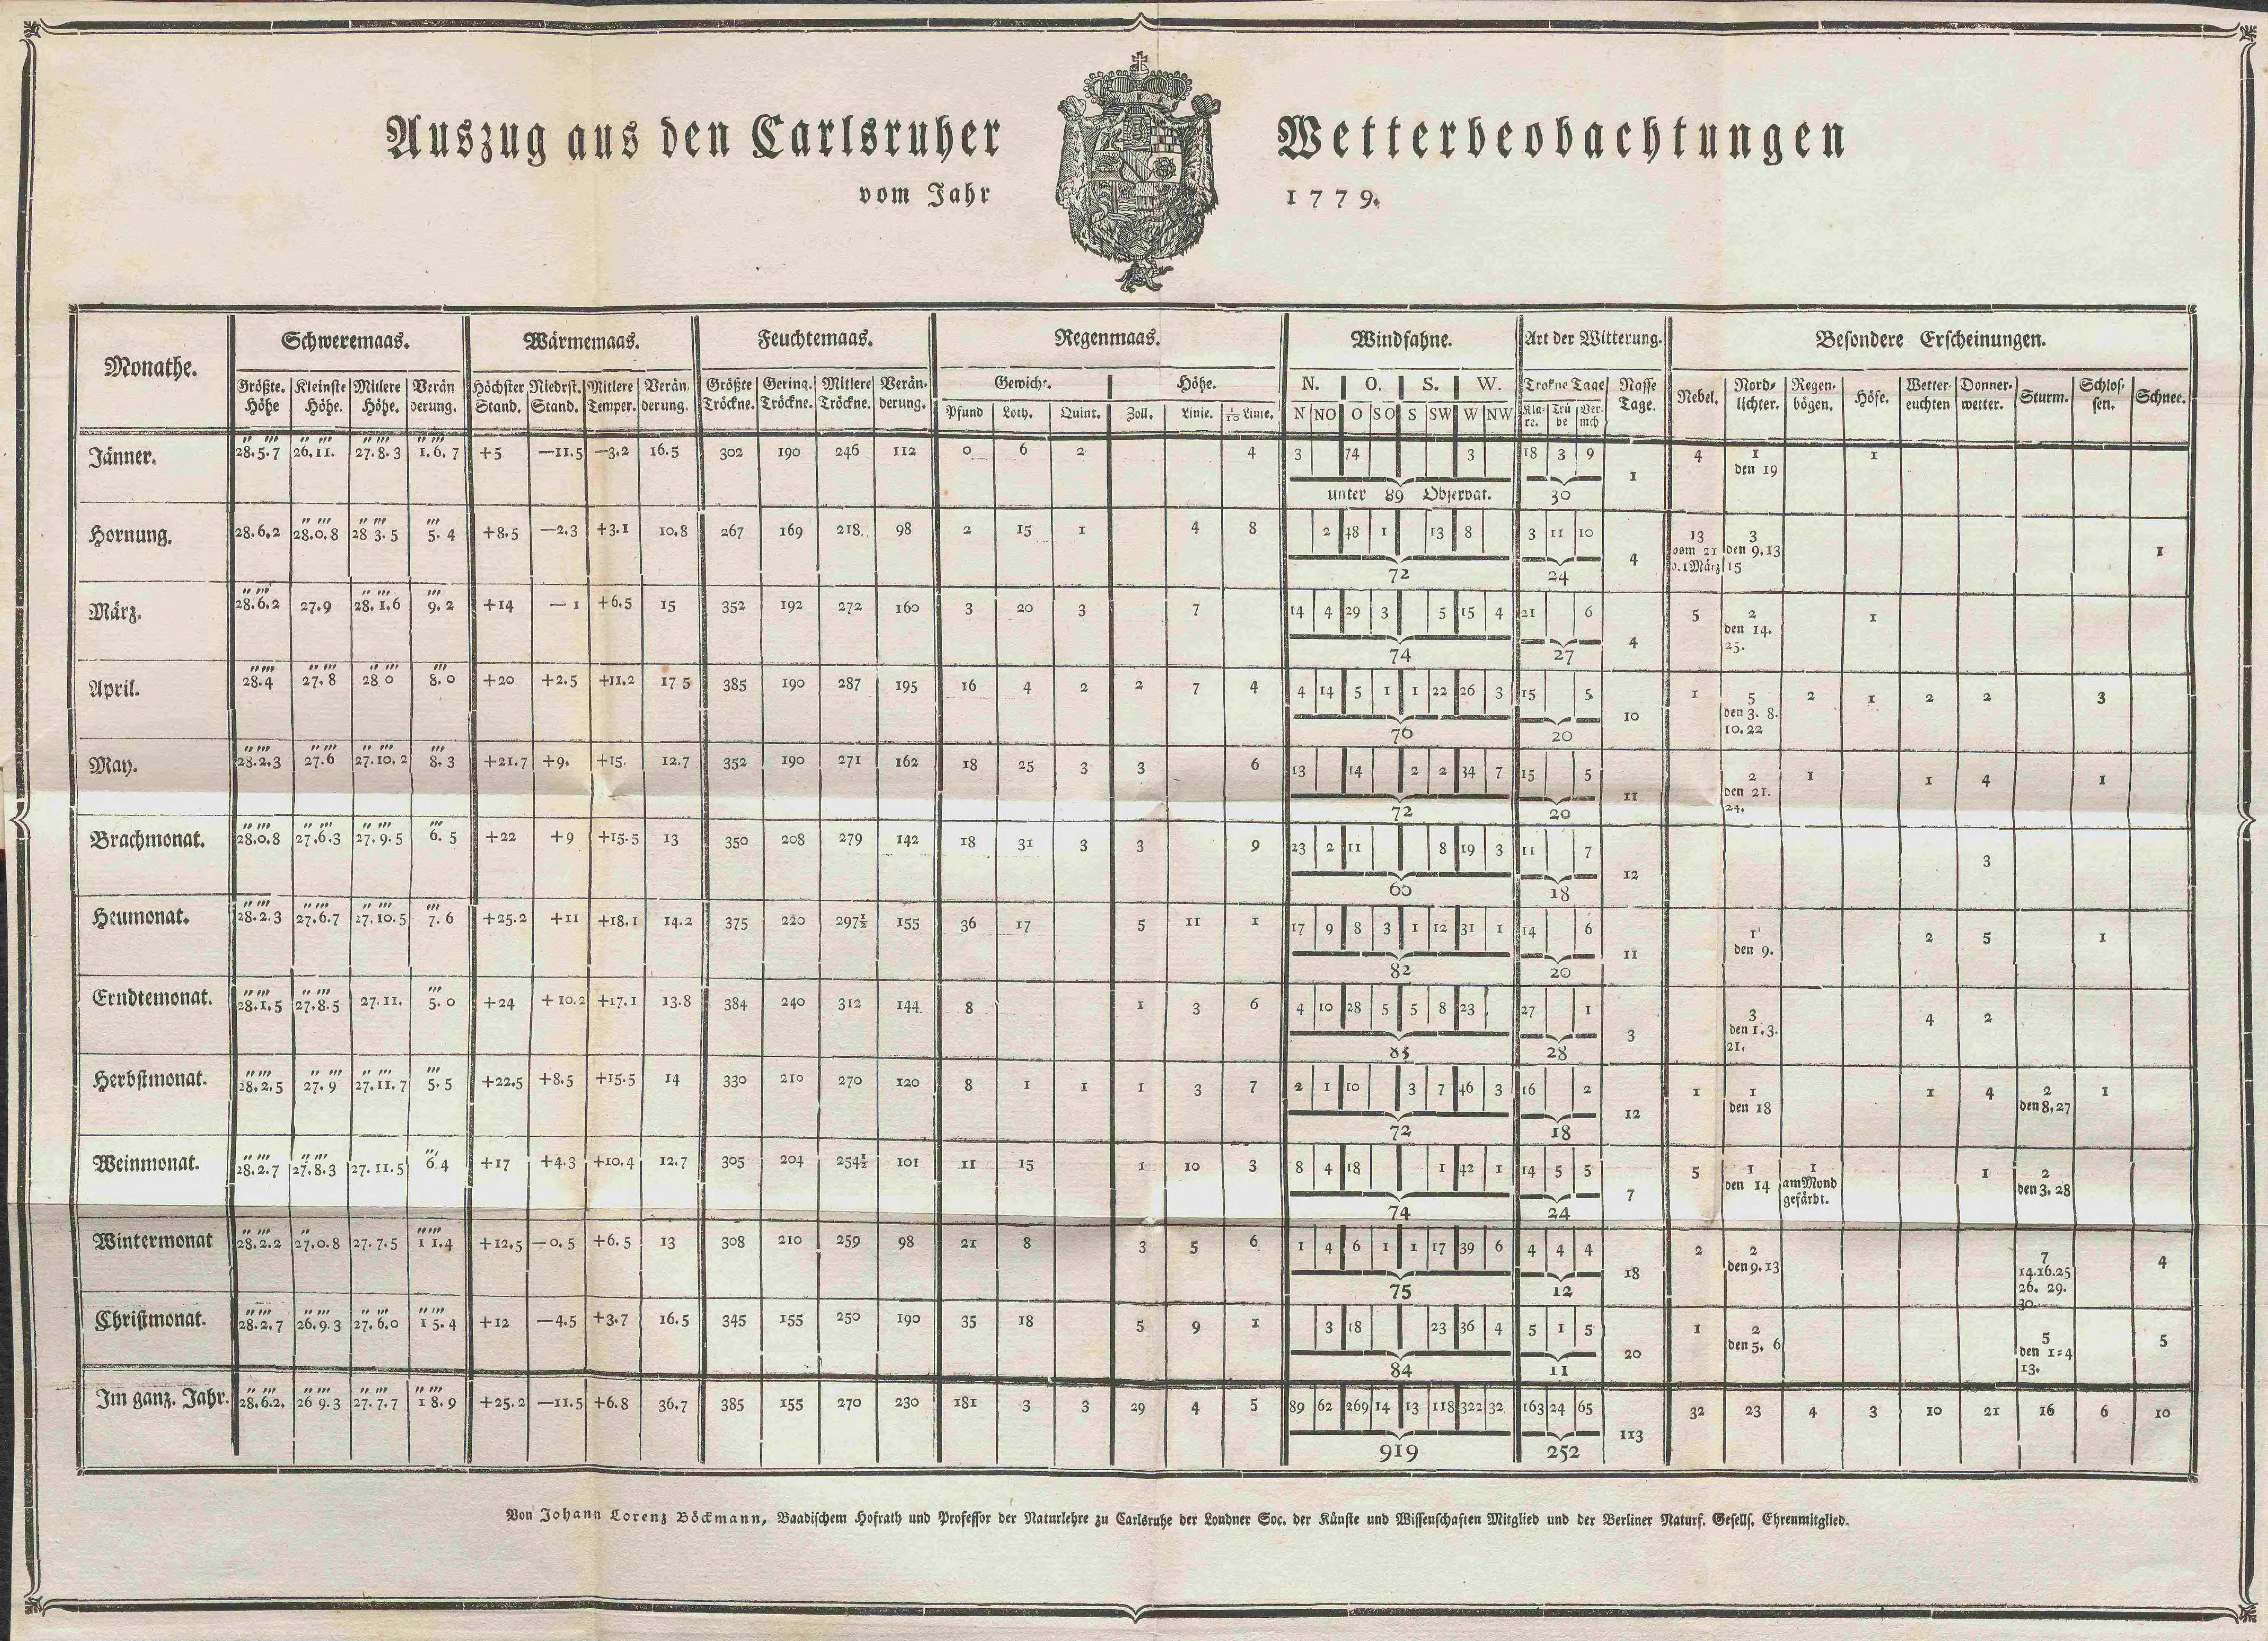 Auszug aus den Carlsruher Wetterbeobachtungen
vom Jahr 1779.
Monathe. Schweremaas. Wärmemaas. Feuchtemaas. Regenmaas. Windfahne. Art der Witterung. Besondere Erscheinungen.
Größte. Höhe Kleinste Höhe. Mitlere Höhe. Verän derung. Höchster Stand. Niedrst. Stand. Mitlere Temper. Verän derung. Größte Tröckne. Gering. Tröckne. Mitlere Tröckne. Verän- derung. Gewicht. Höhe. N. O. S. W. Trokne Tage Nasse Tage. Nebel. Nord- lichter. Regen- bögen. Höfe. Wetter- leuchten Donner- wetter. Sturm. Schlos- sen. Schnee.
Pfund Loth. Quint. Zoll. Linie. 1/10 Linie. N NO O SO S SW W NW Kla- re. Trü be Ver- misch
Jänner. 28.5.7 26.11. 27.8.3 1.6.7 +5 —11.5 —3.2 16.5 302 190 246 112 0 6 2 4 3 74 3 18 3 9 1 4 1 1
den 19
unter 89 Observat. 30
Hornung. 28.6.2 28.0.8 28 3.5 5.4 +8.5 —2.3 +3.1 10.8 267 169 218. 98 2 15 1 4 8 2 48 1 13 8 3 11 10 4 13 3 1
vom 21 den 9.13
b. 1März 15
72 24
März. 28.6.2 27.9 28.1.6 9.2 +14 —1 +6.5 15 352 192 272 160 3 20 3 7 14 4 29 3 5 15 4 21 6 4 5 2 1
den 14.
25.
74 27
April. 28.4 27.8 28 0 8.0 +20 +2.5 +11.2 17 5 385 190 287 195 16 4 2 2 7 4 4 14 5 1 1 22 26 3 15 5 10 1 5 2 1 2 2 3
den 3. 8.
10.22
76 20
May. 28.2.3 27.6 27.10.2 8.3 +21.7 +9. +15. 12.7 352 190 271 162 18 25 3 3 6 13 14 2 2 34 7 15 5 11 2 1 1 4 1
den 21.
24.
72 20
Brachmonat. 28.0.8 27.6.3 27.9.5 6.5 +22 +9 +15.5 13 350 208 279 142 18 31 3 3 9 23 2 11 8 19 3 11 7 12 3
18
Heumonat. 28.2.3 27.6.7 27.10.5 7.6 +25.2 +11 +18.1 14.2 375 220 297½ 155 36 17 5 11 1 17 9 8 3 1 12 31 1 14 6 11 1 2 5 1
den 9.
82 20
Erndtemonat. 28.1.5 27.8.5 27.11. 5.0 +24 +10.2 +17.1 13.8 384 240 312 144 8 1 3 6 4 10 28 5 5 8 23 27 1 3 3 4 2
den 1.3.
21.
83 28
Herbstmonat. 28.2.5 27.9 27.11.7 5.5 +22.5 +8.5 +15.5 14 330 210 270 120 8 1 1 1 3 7 2 1 10 3 7 46 3 16 2 12 1 1 1 4 2 1
den 18 den 8.27
72 18
Weinmonat. 28.2.7 27.8.3 27.11.5 6.4 +17 +4.3 +10.4 12.7 305 204 254½ 101 11 15 1 10 3 8 4 18 1 42 1 14 5 5 7 5 1 1 1 2
den 14 am Mond gefärbt. den 3. 28
74 24
Wintermonat 28.2.2 27.0.8 27.7.5 11.4 +12.5 —0.5 +6.5 13 308 210 259 98 21 8 3 5 6 1 4 6 1 1 17 39 6 4 4 4 18 2 2 7 4
den 9.13 14.16.25
26. 29.
30.
75 12
Christmonat. 28.2.7 26.9.3 27.6.0 15.4 +12 —4.5 +3.7 16.5 345 155 250 190 35 18 5 9 1 3 18 23 36 4 5 1 5 20 1 2 5 5
den 5. 6 den 1=4
13.
84 11
Im ganz. Jahr. 28.6.2. 26 9.3 27.7.7 18.9 +25.2 —11.5 +6.8 36.7 385 155 270 230 181 3 3 29 4 5 89 62 269 14 13 118 322 32 163 24 65 113 32 23 4 3 10 21 16 6 10
919 252
Von Johann Lorenz Böckmann, Baadischem Hofrath und Professor der Naturlehre zu Carlsruhe der Londner Soc. der Künste und Wissenschaften Mitglied und der Berliner Naturf. Gesells. Ehrenmitglied.